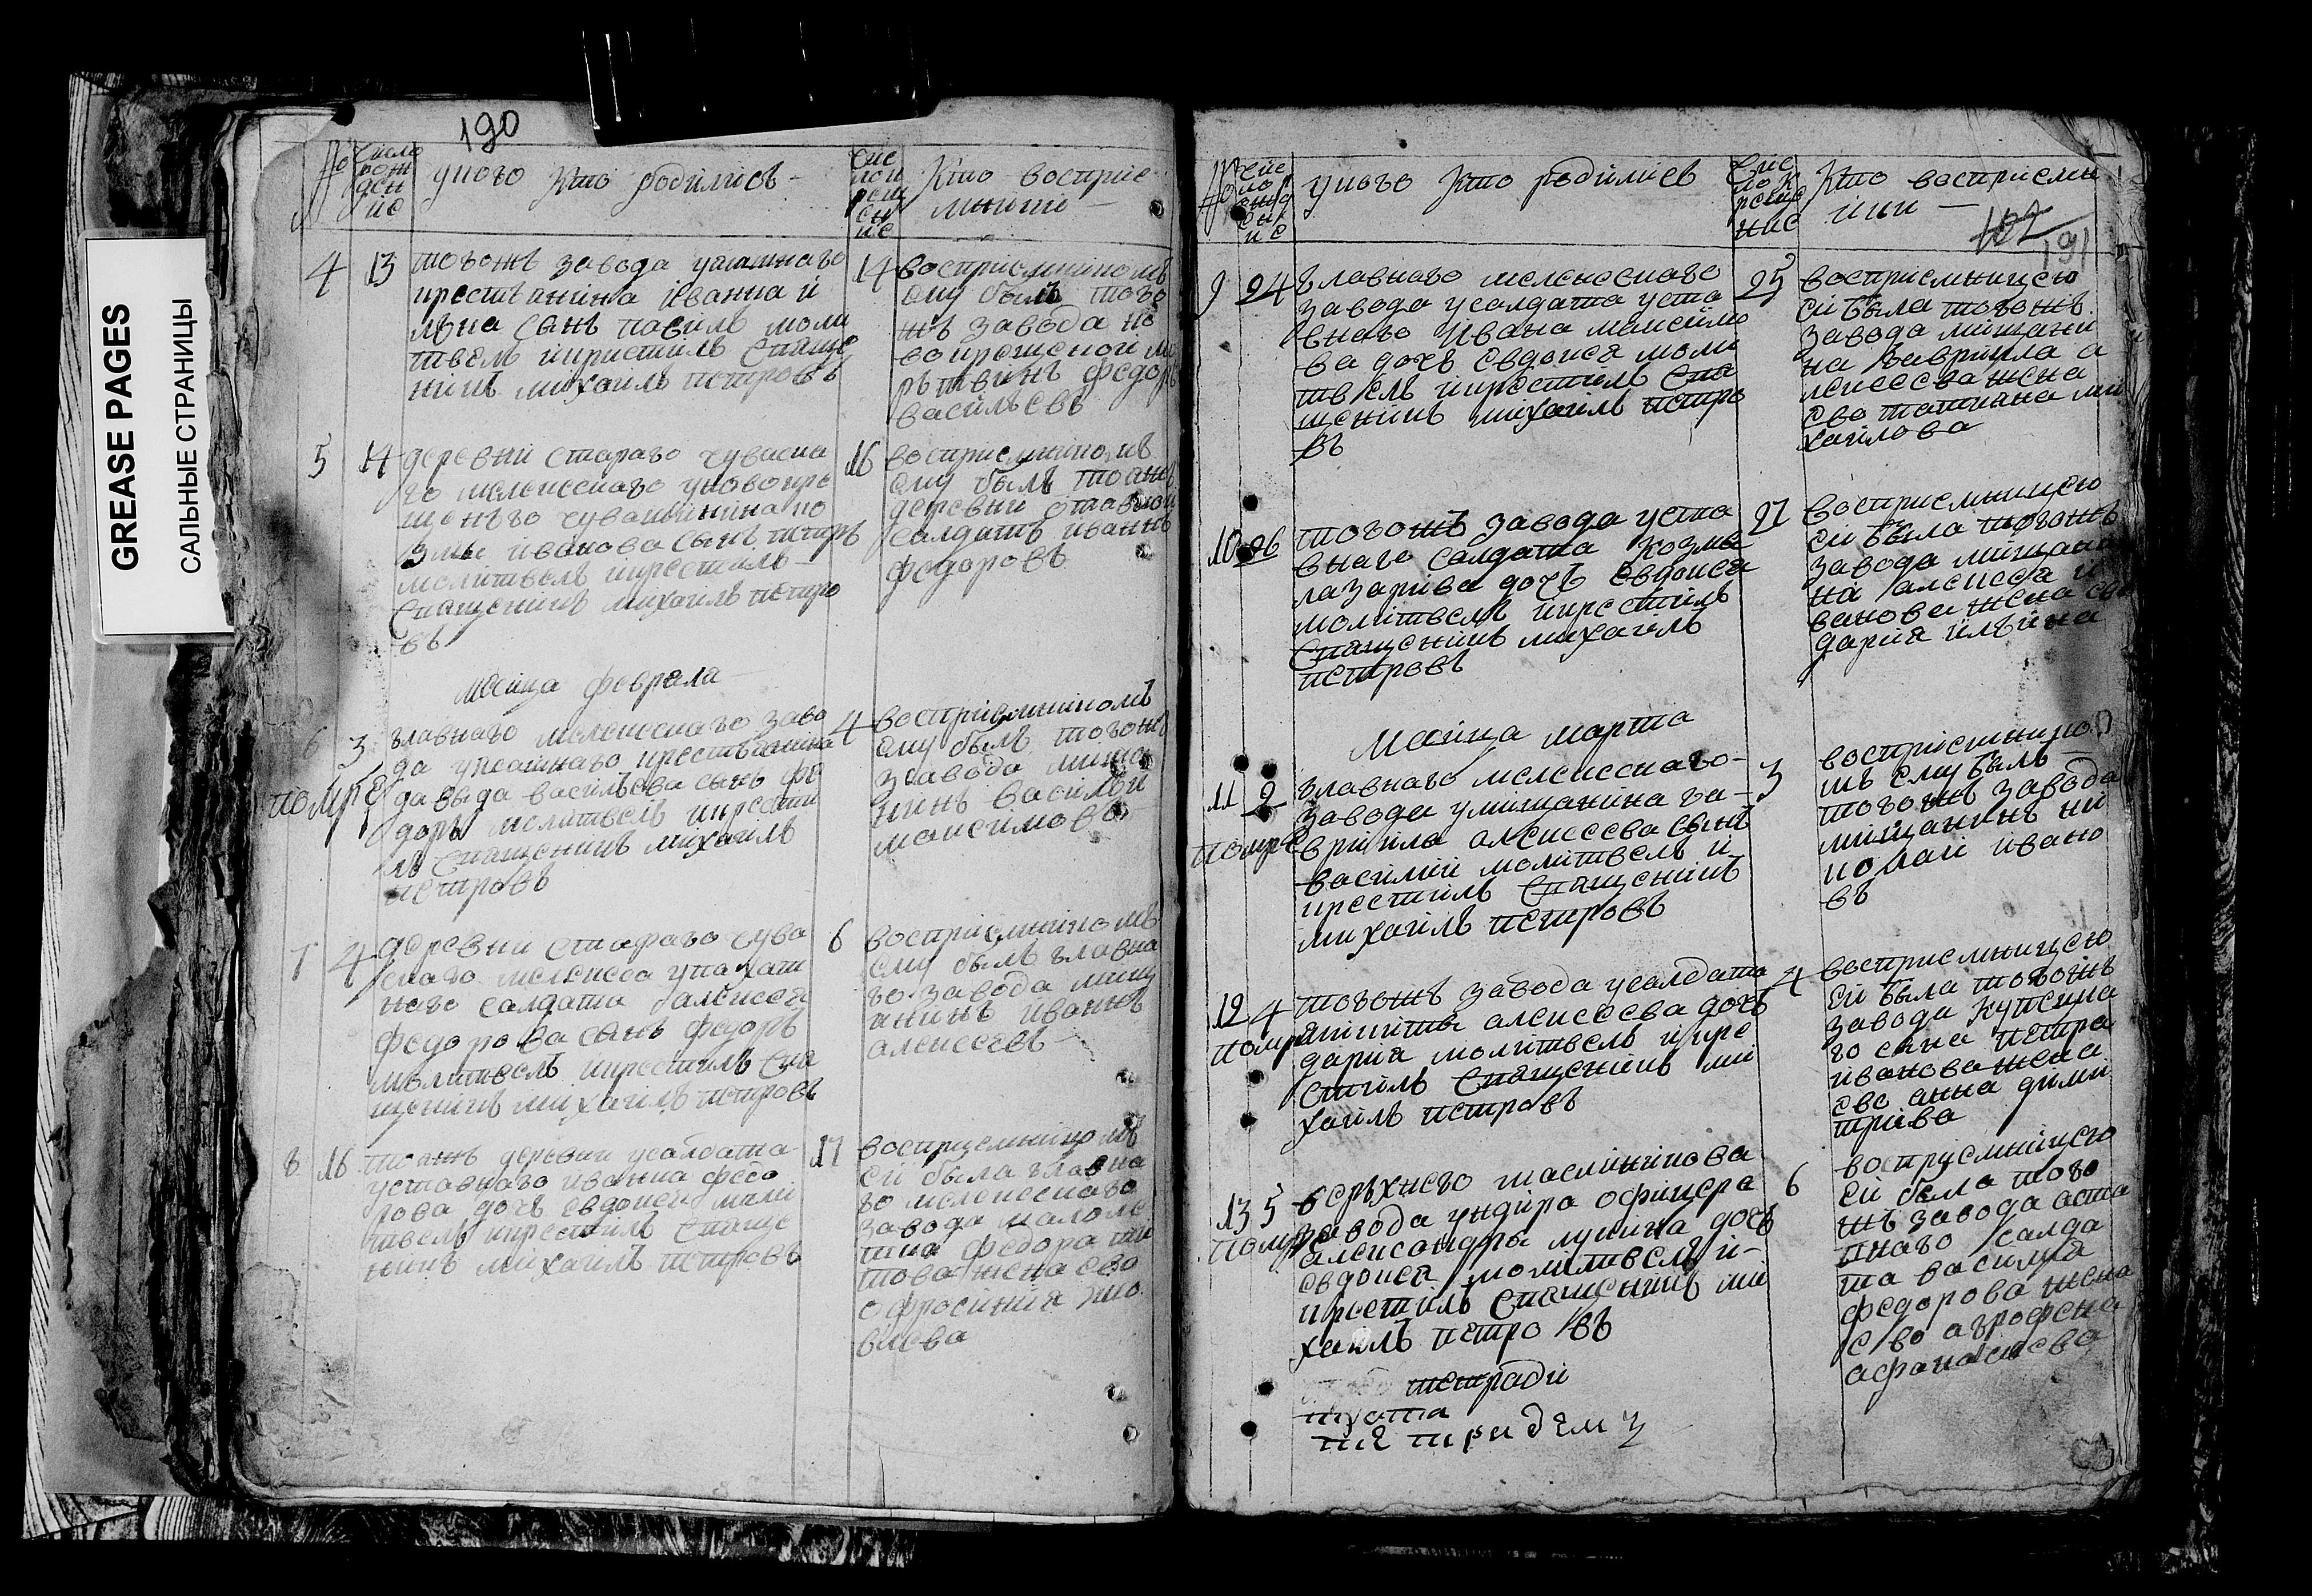 GREASE PAGES
САЛЬНЫЕ СТРАНИЦЫ
190
№
число
рож
ден
ие
у кого кто родились
чис
ло к
реш
ен
ие
кто восприе
мники
4
13
тогожъ завода у
крестьянина иванна и
льина сынъ павелъ моли
твелъ икрестилъ свяще
никъ михаилъ петровъ
14
восприемникомъ
ему былъ того
жъ завода но
вокрещеной м
рътвинъ федоръ
васильевъ
5
14
деревни стараго чуваска
го мелекесскаго уновокре
щенъго чувашинина ко
змы иванова сынъ петръ
молитвелъ икрестилъ
священикъ михаилъ петро
въ
16
восприемникомъ
ему былъ тоежъ
деревни отавной
салдатъ иваннъ
федоровъ
месяца февраля
6
3
помре
главнаго мелекескаго заво
да уясашнаго крестьянина
давыда васильева сынъ фе
доръ молитвелъ икрести
лъ священикъ михаилъ
петровъ
4
восприемникомъ
ему былъ тогожъ
завода мища
нинъ василей
максимовъ
7
4
деревни стараго чува
скаго мелекесса упахат
наго салдата алексея
федорова сынъ федоръ
молитвелъ икрестилъ свя
щеникъ михаилъ петровъ
6
восприемникомъ
ему былъ главна
го завода мищ
анинъ иваннъ
алексеевъ
8
16
тоежъ деревни усалдата
уставнаго иванна федо
рова дочь евдокея моли
твелъ икрестилъ свяще
никъ михаилъ петровъ
17
восприемникомъ
ей была главна
го мелекескаго
завода малоле
тка федора ти
това жена ево
ефросиния яко
влева
№
у кого кто родились
кто восприемн
ики
102
191
9
24
главнаго мелекескаго
завода усалдата уста
внаго ивана максимо
ва дочь евдокея моли
твелъ икрестилъ свя
щеникъ михаилъ петро
въ
25
восприемницею
ей была тогожъ
завода мищани
на гаврилла а
лексеева жена
ево татиана ми
хаилова
10
26
тогожъ завода уста
внаго салдата козмы
лазарева дочь евдокея
молитвелъ икрестилъ
священикъ михаилъ
петровъ
27
восприемницею
ей была тогожъ
завода мищани
на алексея и
ванова жена ево
дария ильина
месяца марта
11
2
помре
главнаго мелекесскаго
завода умищанина га
врилла алексеева сынъ
василий молитвелъ и
крестилъ священикъ
михаилъ петровъ
3
восприемнико
мъ ему былъ
тогожъ завода
мищанинъ ни
колай ивано
въ
12
4
помре
тогожъ завода усалдата
никиты алексеева дочь
дария молитвелъ икре
стилъ священикъ ми
хаилъ петровъ
4
восприемницею
ей была тогожъ
завода купецка
го сына петра
иванова жена
ево анна дими
трива
13
5
помре
верхнего
завода ундира офицера
александры лукина дочь
евдокея молитвелъ и
крестилъ священикъ ми
хаилъ петровъ
6
восприемницею
ей была того
жъ завода отста
вного салда
та василия
федорова жена
ево агрофена
афанасиева
тетради